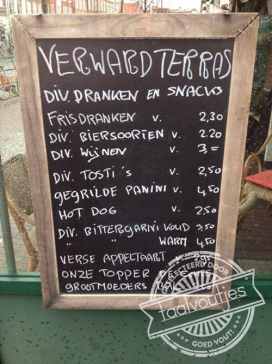 VERWARDTERRAS
DIV. DRANKEN EN SNACKS
FRISDRANKEN V. 2,30
DIV. BIERSOORTEN V. 2.20
DIV. WIJNEN V. 3=
DIV. TOSTI'S V. 2,50
GEGRILDE PANINI V. 4,50
HOT DOG V. 2,50
DIV. BITTERGARNI KOUD 3,50
" " WARM 4,50
VERSE APPELTAART
ONZE TOPPER
GROOTMOEDERS
GESELECTEERD DOOR
taalvoutjes
GOED VOUT!